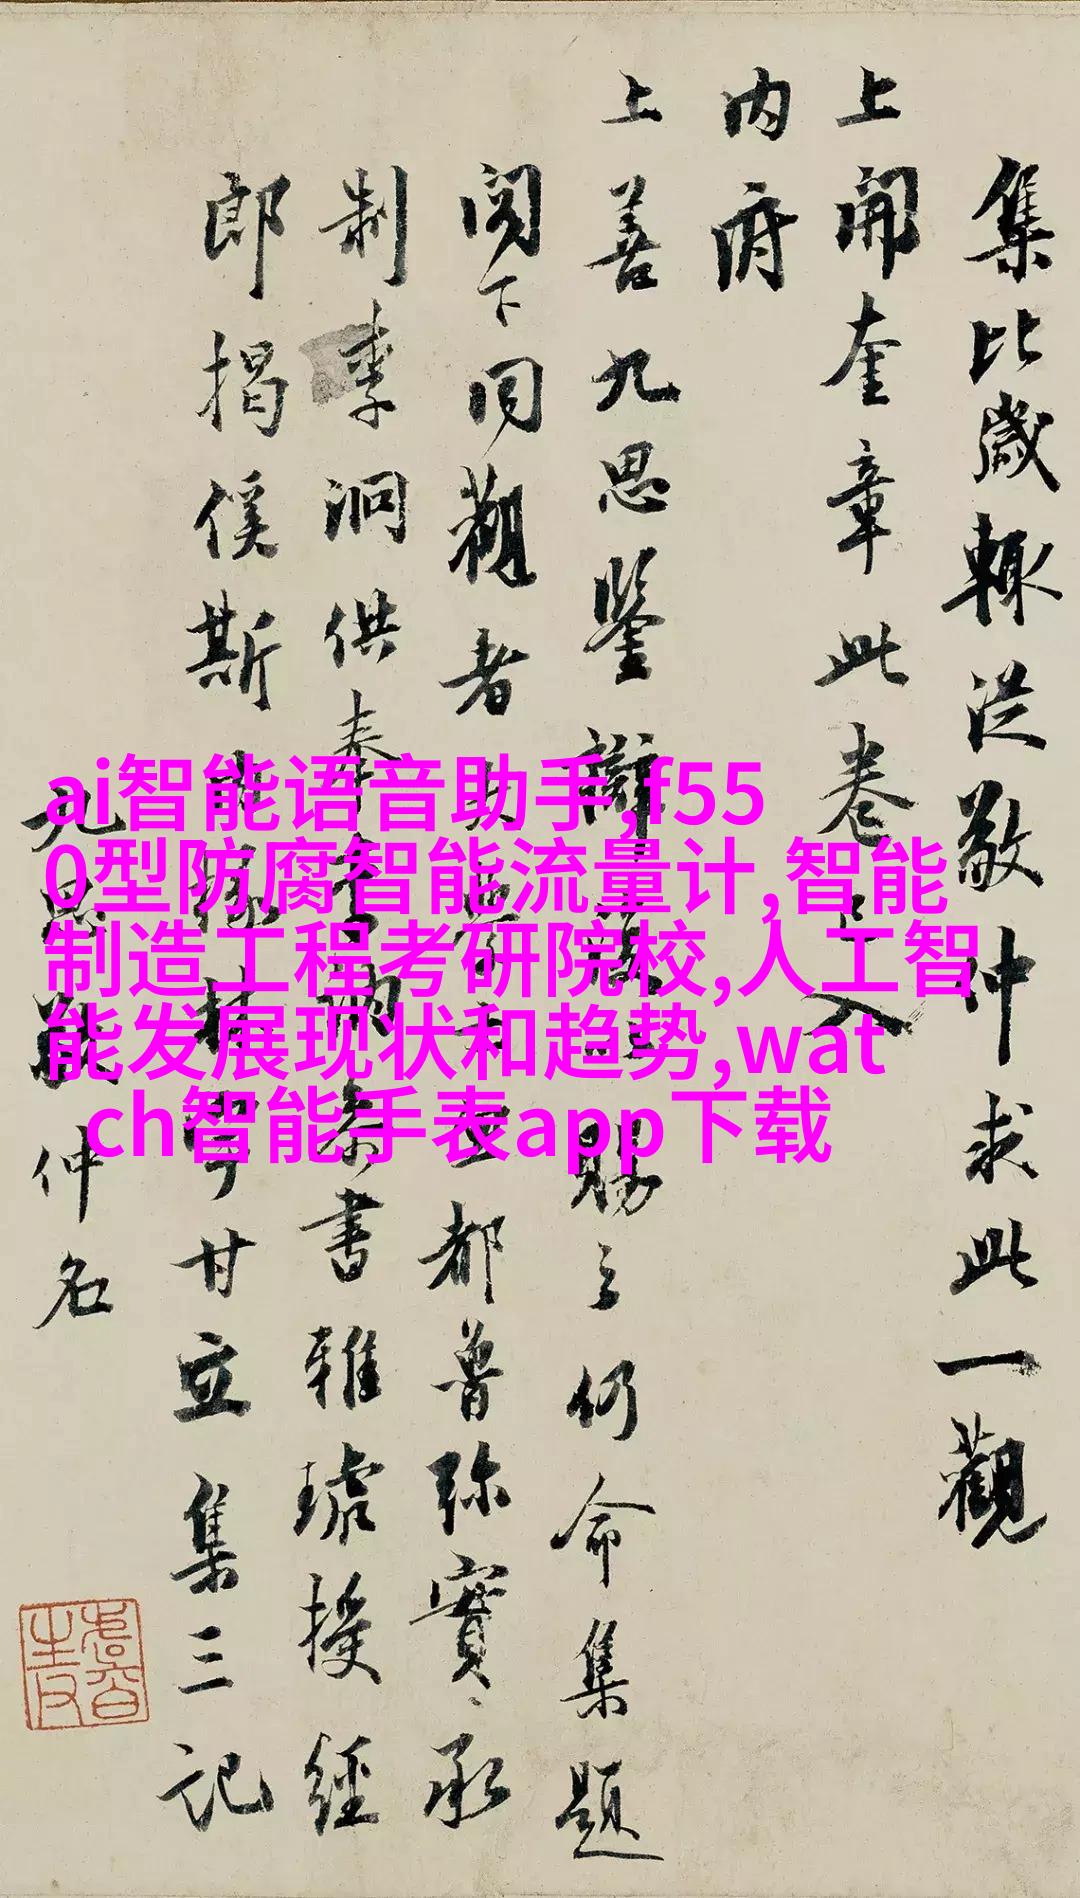 集比歲輒從敬仲求此一觀
上開奎章此卷入
内府
上善九思鑒辯賜之仍命集題
閣下同觀者都魯弥實承
制李泂供奉書雅琥授經
郎揭傒斯林宇甘立集三記
九思敬仲名
ai智能语音助手,f55
0型防腐智能流量计,智能
制造工程考研院校,人工智
能发展现状和趋势,wat
ch智能手表app下载